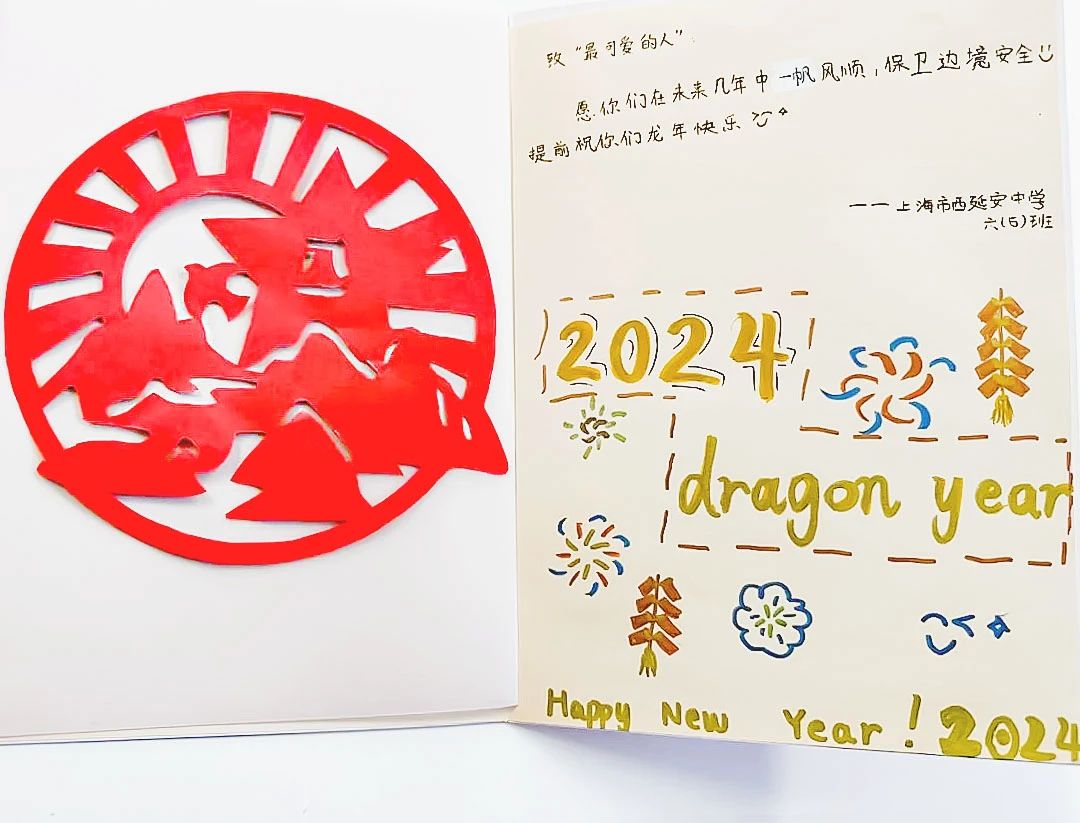 致“最可爱的人”:
愿你们在未来几年中一帆风顺，保卫边境安全
提前祝你们龙年快乐
——上海市西延安中学
六(6)班
2024
dragon year
Happy New Year! 2024